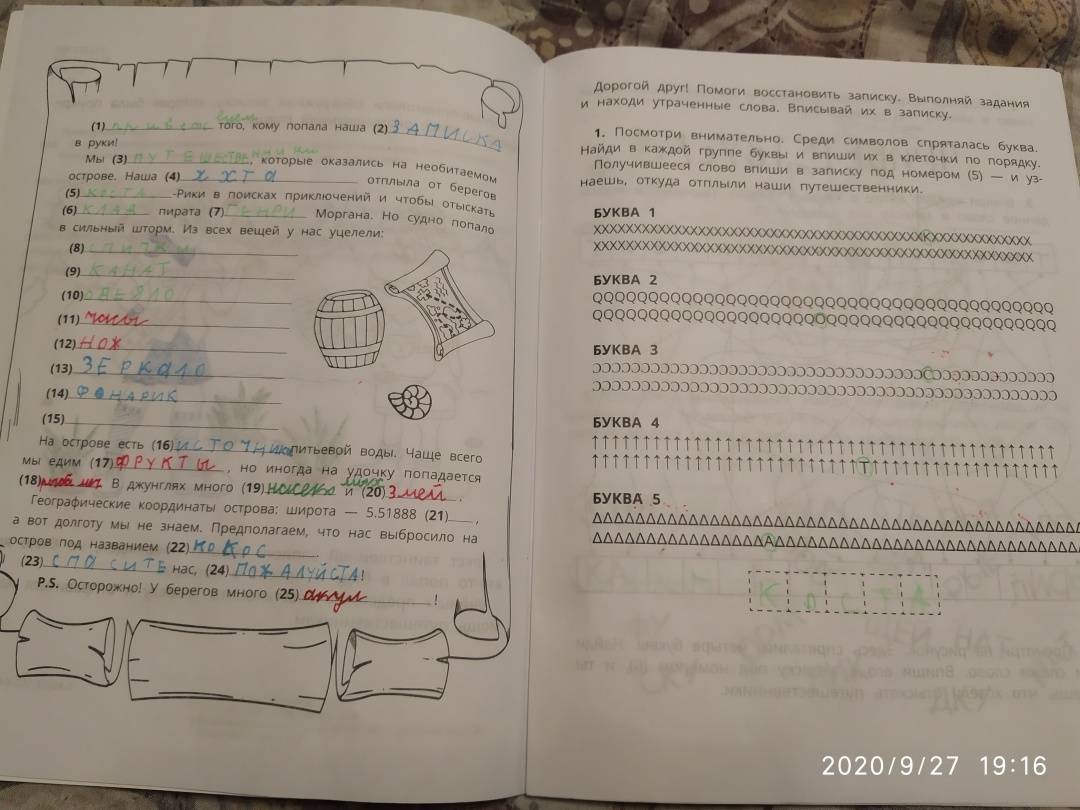 (1) приветствуем того, кому попала наша (2) ЗАПИСКА
в руки!
Мы (3) ПУТЕШЕСТВЕННИКИ, которые оказались на необитаемом
острове. Наша (4) ЯХТА отплыла от берегов
(5) КОСТА -Рики в поисках приключений и чтобы отыскать
(6) КЛАД пирата (7) ГЕНРИ Моргана. Но судно попало
в сильный шторм. Из всех вещей у нас уцелели:
(8) СПИЧКИ
(9) КАНАТ
(10) ОДЕЯЛО
(11) часы
(12) НОЖ
(13) ЗЕРКАЛО
(14) ФОНАРИК
(15)
На острове есть (16) ИСТОЧНИК питьевой воды. Чаще всего
мы едим (17) ФРУКТЫ, но иногда на удочку попадается
(18) В джунглях много (19) насекомых и (20) Змей.
Географические координаты острова: широта — 5.51888 (21)___,
а вот долготу мы не знаем. Предполагаем, что нас выбросило на
остров под названием (22) КОКОС
(23) СПАСИТЕ нас, (24) ПОЖАЛУЙСТА!
P.S. Осторожно! У берегов много (25) акул !
Дорогой друг! Помоги восстановить записку. Выполняй задания
и находи утраченные слова. Вписывай их в записку.
1. Посмотри внимательно. Среди символов спряталась буква.
Найди в каждой группе буквы и впиши их в клеточки по порядку.
Получившееся слово впиши в записку под номером (5) — и уз-
наешь, откуда отплыли наши путешественники.
БУКВА 1
БУКВА 2
БУКВА 3
БУКВА 4
БУКВА 5
КОСТА
2020/9/27 19:16